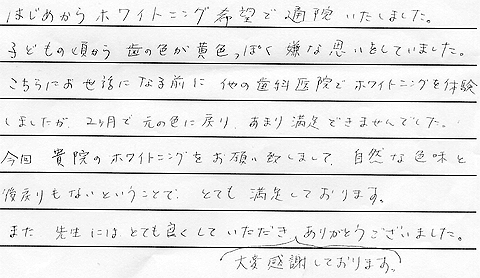 はじめからホワイトニング希望で通院いたしました。
子どもの頃から歯の色が黄色っぽく嫌な思いをしていました。
こちらにお世話になる前に他の歯科医院でホワイトニングを体験
しましたが、2ヶ月で元の色に戻り、あまり満足できませんでした。
今回 貴院のホワイトニングをお願い致しまして、自然な色味と
後戻りもないということで、とても満足しております。
また 先生にはとても良くしていただき ありがとうございました。
大変感謝しております。